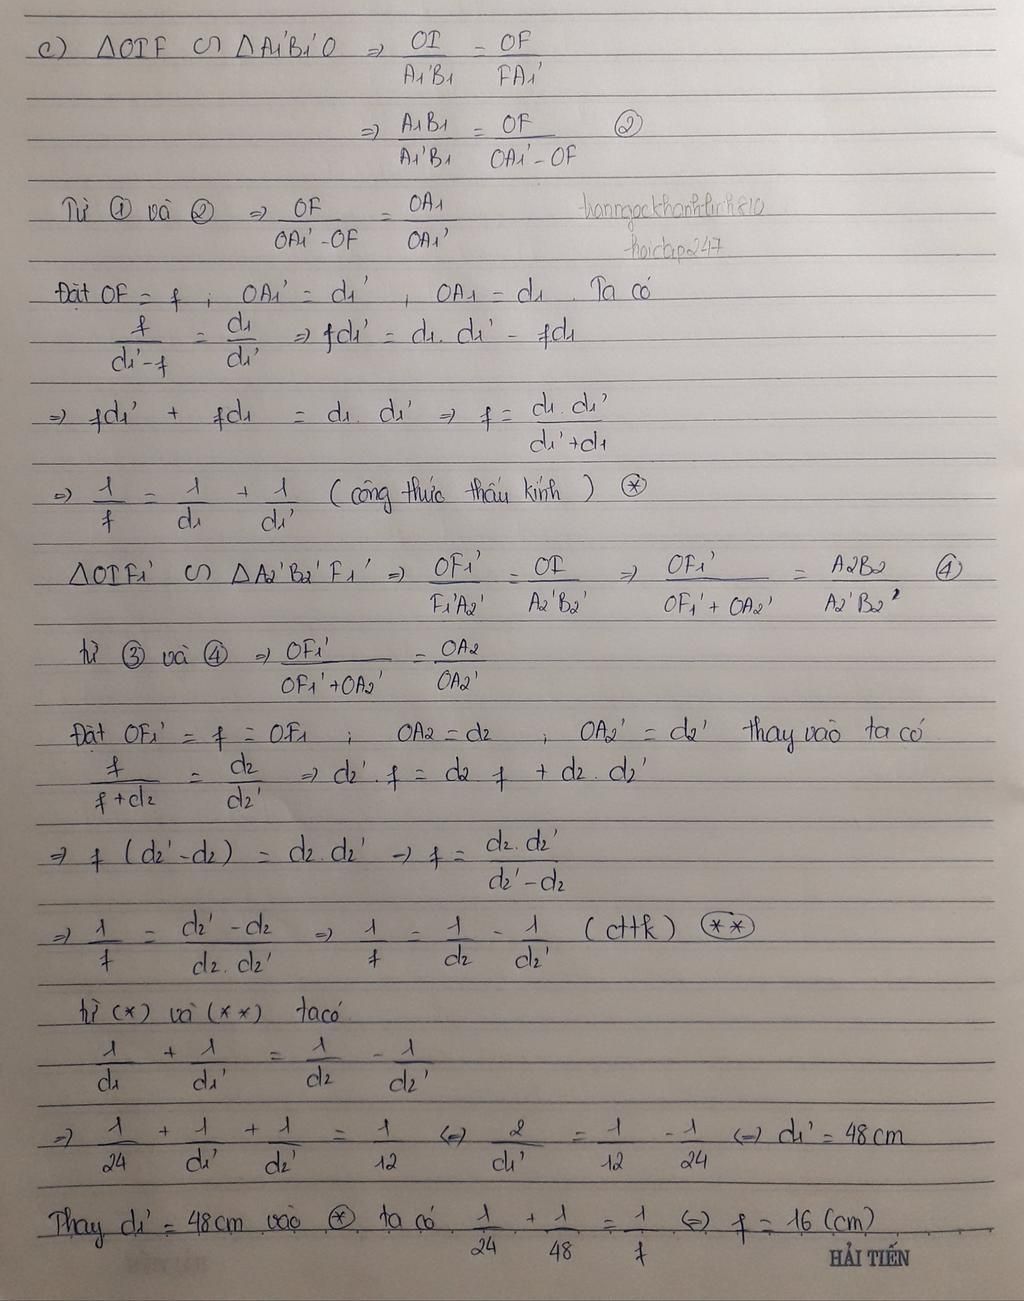 c) ΔOIF ∽ ΔA₁'B₁'O ⇒ OI/A₁'B₁ = OF/FA₁'
⇒ A₁B₁/A₁'B₁ = OF/(OA₁' - OF) ②
Từ ① và ② ⇒ OF/(OA₁' - OF) = OA₁/OA₁'
hanngockhanhlinh810
hoidap247
Đặt OF = f ; OA₁' = d₁' , OA₁ = d₁ . Ta có
f/(d₁' - f) = d₁/d₁' ⇒ fd₁' = d₁. d₁' - fd₁
⇒ fd₁' + fd₁ = d₁. d₁' ⇒ f = d₁. d₁'/(d₁' + d₁)
⇒ 1/f = 1/d₁ + 1/d₁' (công thức thấu kính) (*)
ΔOIF₁' ∽ ΔA₂'B₂'F₁' ⇒ OF₁'/F₁'A₂' = OI/A₂'B₂' ⇒ OF₁'/(OF₁' + OA₂') = A₂B₂/A₂'B₂' ④
từ ③ và ④ ⇒ OF₁'/(OF₁' + OA₂') = OA₂/OA₂'
Đặt OF₁' = f = OF₁ ; OA₂ = d₂ ; OA₂' = d₂' thay vào ta có
f/(f + d₂) = d₂/d₂' ⇒ d₂'. f = d₂ f + d₂. d₂'
⇒ f (d₂' - d₂) = d₂. d₂' ⇒ f = d₂. d₂'/(d₂' - d₂)
⇒ 1/f = (d₂' - d₂)/(d₂. d₂') ⇒ 1/f = 1/d₂ - 1/d₂' (cttk) (**)
từ (*) và (**) ta có
1/d₁ + 1/d₁' = 1/d₂ - 1/d₂'
⇒ 1/24 + 1/d₁' + 1/d₂' = 1/12 ⇔ 2/d₁' = 1/12 - 1/24 ⇔ d₁' = 48cm
Thay d₁' = 48cm vào (*) ta có 1/24 + 1/48 = 1/f ⇔ f = 16 (cm)
HẢI TIẾN